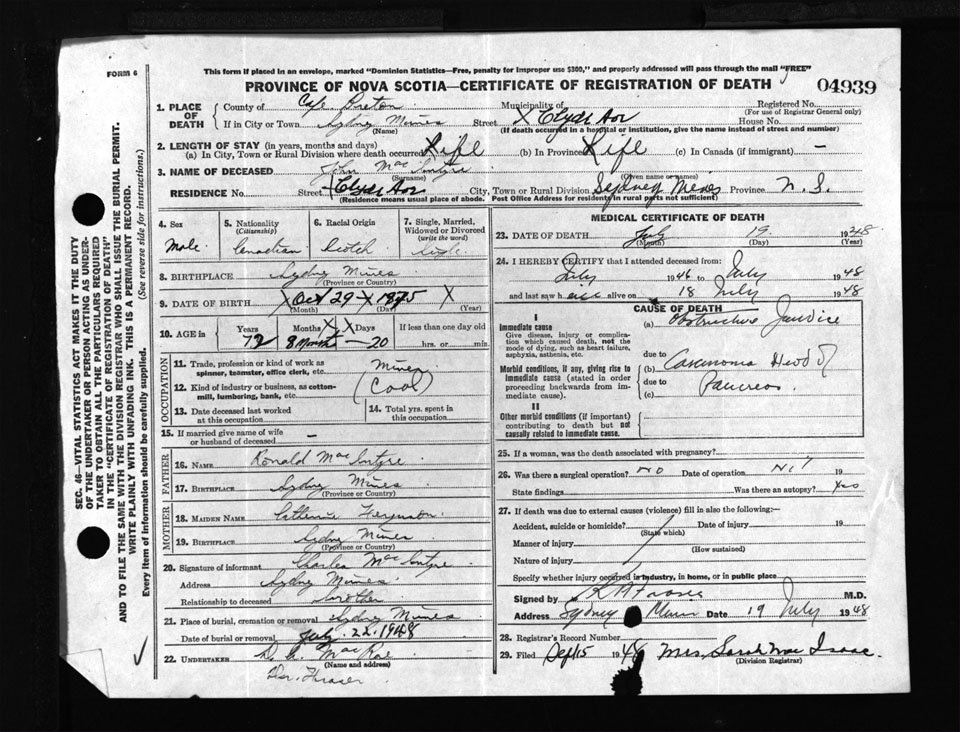 FORM 6
This form if placed in an envelope, marked "Dominion Statistics—Free, penalty for improper use $300," and properly addressed will pass through the mail "FREE"
PROVINCE OF NOVA SCOTIA—CERTIFICATE OF REGISTRATION OF DEATH
04939
SEC. 46—VITAL STATISTICS ACT MAKES IT THE DUTY
OF THE UNDERTAKER OR PERSON ACTING AS UNDER-
TAKER TO OBTAIN ALL THE PARTICULARS REQUIRED
IN THE "CERTIFICATE OF REGISTRATION OF DEATH"
AND TO FILE THE SAME WITH THE DIVISION REGISTRAR WHO SHALL ISSUE THE BURIAL PERMIT.
WRITE PLAINLY WITH UNFADING INK. THIS IS A PERMANENT RECORD.
Every item of Information should be carefully supplied. (See reverse side for instructions.)
1. PLACE OF DEATH
County of Cape Breton Municipality of Registered No.
(For use of Registrar General only)
If in City or Town Sydney Mines Street X Clyde Ave House No.
(Name) (If death occurred in a hospital or institution, give the name instead of street and number)
2. LENGTH OF STAY (in years, months and days)
(a) In City, Town or Rural Division where death occurred Life (b) In Province Life (c) In Canada (if immigrant) —
3. NAME OF DECEASED John MacIntyre
(Surname) (Given name or names)
RESIDENCE No. Street Clyde Ave City, Town or Rural Division Sydney Mines Province N. S.
(Residence means usual place of abode. Post Office Address for residents in rural parts not sufficient)
4. Sex 5. Nationality (Citizenship) 6. Racial Origin 7. Single, Married, Widowed or Divorced (write the word)
Male Canadian Scotch Single
8. BIRTHPLACE Sydney Mines
(Province or Country)
9. DATE OF BIRTH X Oct 29 X 1875 X
(Month) (Day) (Year)
10. AGE in Years Months Days If less than one day old
72 8 Month — 20 hrs. or min.
OCCUPATION
11. Trade, profession or kind of work as spinner, teamster, office clerk, etc. Miner
12. Kind of industry or business, as cotton-mill, lumbering, bank, etc. (Coal)
13. Date deceased last worked at this occupation
14. Total yrs. spent in this occupation
15. If married give name of wife or husband of deceased —
FATHER
16. NAME Ronald MacIntyre
17. BIRTHPLACE Sydney Mines
(Province or Country)
MOTHER
18. MAIDEN NAME Catherine Ferguson
19. BIRTHPLACE Sydney Mines
(Province or Country)
20. Signature of informant Charles MacIntyre
Address Sydney Mines
Relationship to deceased brother
21. Place of burial, cremation or removal Sydney Mines
Date of burial or removal July. 22. 1948
22. UNDERTAKER MacRae
(Name and address)
Dr. Fraser
MEDICAL CERTIFICATE OF DEATH
23. DATE OF DEATH July 19 1948
(Month) (Day) (Year)
24. I HEREBY CERTIFY that I attended deceased from:
July 1946 to July 1948
and last saw h alive on 18 July 1948
CAUSE OF DEATH
I
Immediate cause (a) Obstructive Jaundice
Give disease, injury or complication which caused death, not the mode of dying, such as heart failure, asphyxia, asthenia, etc.
due to
Morbid conditions, if any, giving rise to immediate cause (stated in order proceeding backwards from immediate cause).
(b) Carcinoma Head of
due to Pancreas
(c)
II
Other morbid conditions (if important) contributing to death but not causally related to immediate cause.
25. If a woman, was the death associated with pregnancy?
26. Was there a surgical operation? No Date of operation Nil 19
State findings Was there an autopsy?
27. If death was due to external causes (violence) fill in also the following:—
Accident, suicide or homicide? Date of injury 19
(State which)
Manner of injury
(How sustained)
Nature of injury
Specify whether injury occurred in industry, in home, or in public place
Signed by M.D.
Address Sydney Mines Date 19 July 1948
28. Registrar's Record Number
29. Filed Sept 15 1948 Mrs. Sarah MacIsaac.
(Division Registrar)